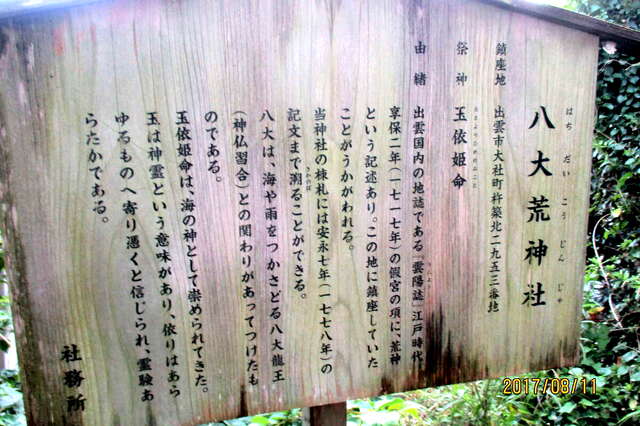 はち だい こう じん じゃ
八大荒神社
鎮座地 出雲市大社町杵築北二九五三番地
たまよりひめのみこと
祭神 玉依姫命
由緒 出雲国内の地誌である『雲陽誌』江戸時代
享保二年（一七一七年）の假宮の項に、荒神
という記述あり。この地に鎮座していた
ことがうかがわれる。
当神社の棟札には安永七年（一七七八年）の
記文まで溯ることができる。
八大は、海や雨をつかさどる八大龍王
（神仏習合）との関わりがあってつけたも
のである。
玉依姫命は、海の神として崇められてきた。
玉は神霊という意味があり、依りはあら
ゆるものへ寄り憑くと信じられ、霊験あ
らたかである。
社務所
2017/08/11